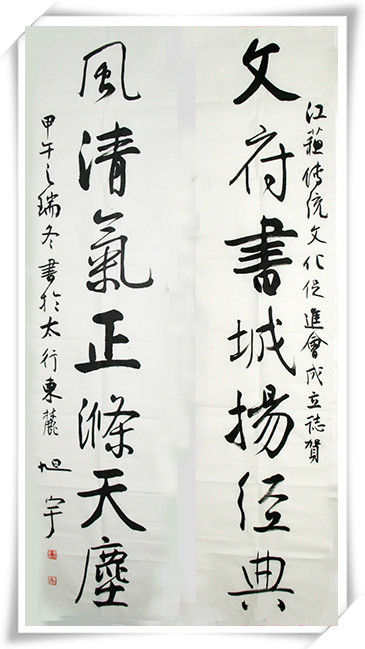 江蘇傳統文化促進會成立誌賀
文府書城揚經典
風清氣正滌天塵
甲午之瑞冬書於太行東麓 旭宇